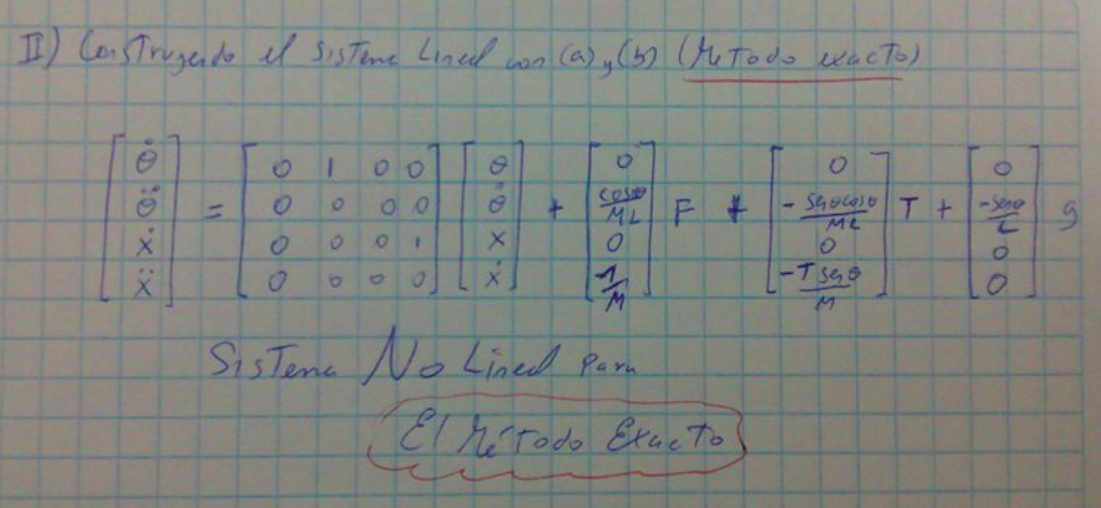 II) Construyendo el Sistema Lineal con (a) y (b) (Método exacto)
[θ̇ θ̈ ẋ ẍ] = [0 1 0 0; 0 0 0 0; 0 0 0 1; 0 0 0 0] [θ θ̇ x ẋ] + [0; cosθ/ML; 0; 1/M] F + [0; -senθcosθ/ML; 0; -Tsenθ/M] T + [0; -senθ/L; 0; 0] g
Sistema No Lineal para
El Método Exacto